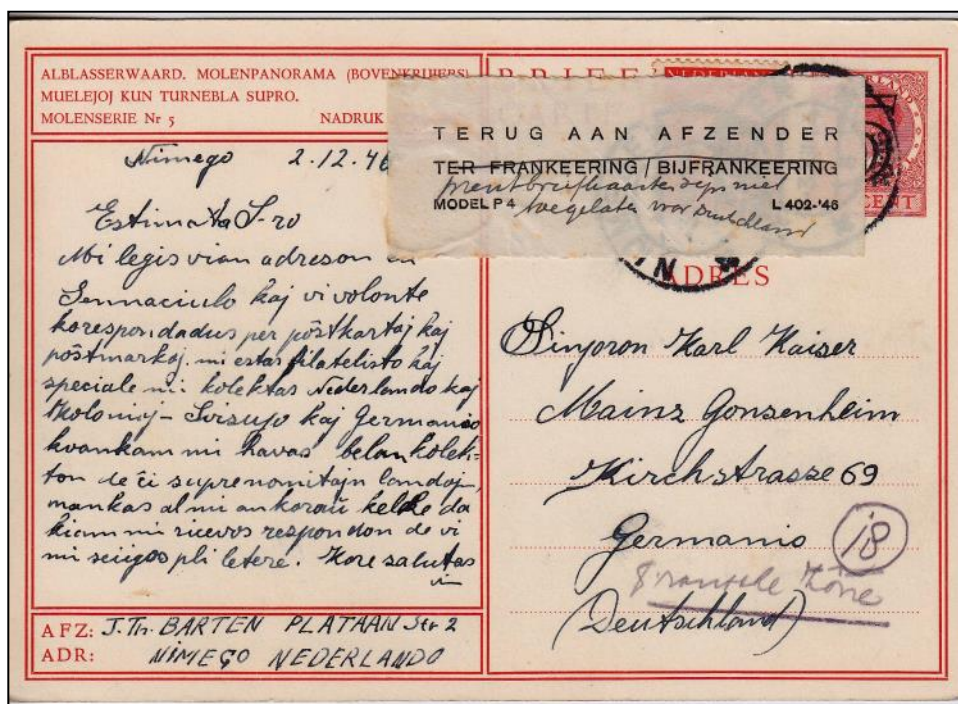 ALBLASSERWAARD. MOLENPANORAMA (BOVENKRUIERS)
MUELEJOJ KUN TURNEBLA SUPRO.
MOLENSERIE Nr 5 NADRUK
Nimego 2.12.46
Estimata S-ro
Mi legis vian adreson en
Sennaciulo kaj vi volonte
korespondadus per pôstkartaj kaj
pôstmarkoj. mi estas filatelisto kaj
speciale mi kolektas Nederlando kaj
Kolonioj - Svisujo kaj Germanio
kvankam mi havas belan kolek=
ton de ĉi suprenomitajn landojn,
mankas al mi ankoraŭ kelke da
kiam mi ricevos respondon de vi
mi sciigos pli letere. Kore salutas
vin
AFZ: J.Th. BARTEN PLATAAN Str 2
ADR: NIMEGO NEDERLANDO
BRIEF
NEDERLAND
TERUG AAN AFZENDER
TER FRANKEERING / BIJFRANKEERING
prentbriefkaarten zijn niet
MODEL P4 toegelaten voor Duitschland L 402-'46
CENT
ADRES
Sinjoron Karl Kaiser
Mainz Gonsenheim
Kirchstrasse 69
Germanio
18
Fransche Zône
(Deutschland)